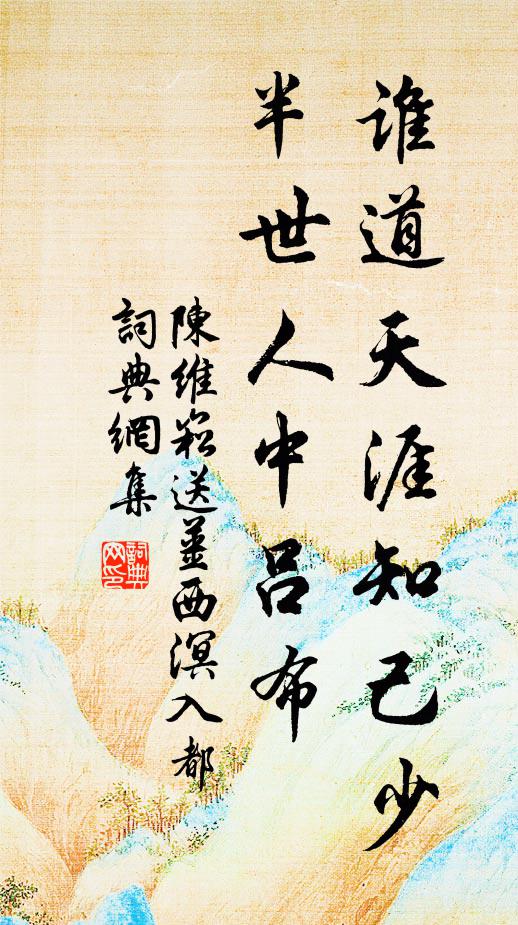 誰道天涯知己少
半世人中呂布
陳維崧送薑西溟入都
詞典網集
詞典
网印